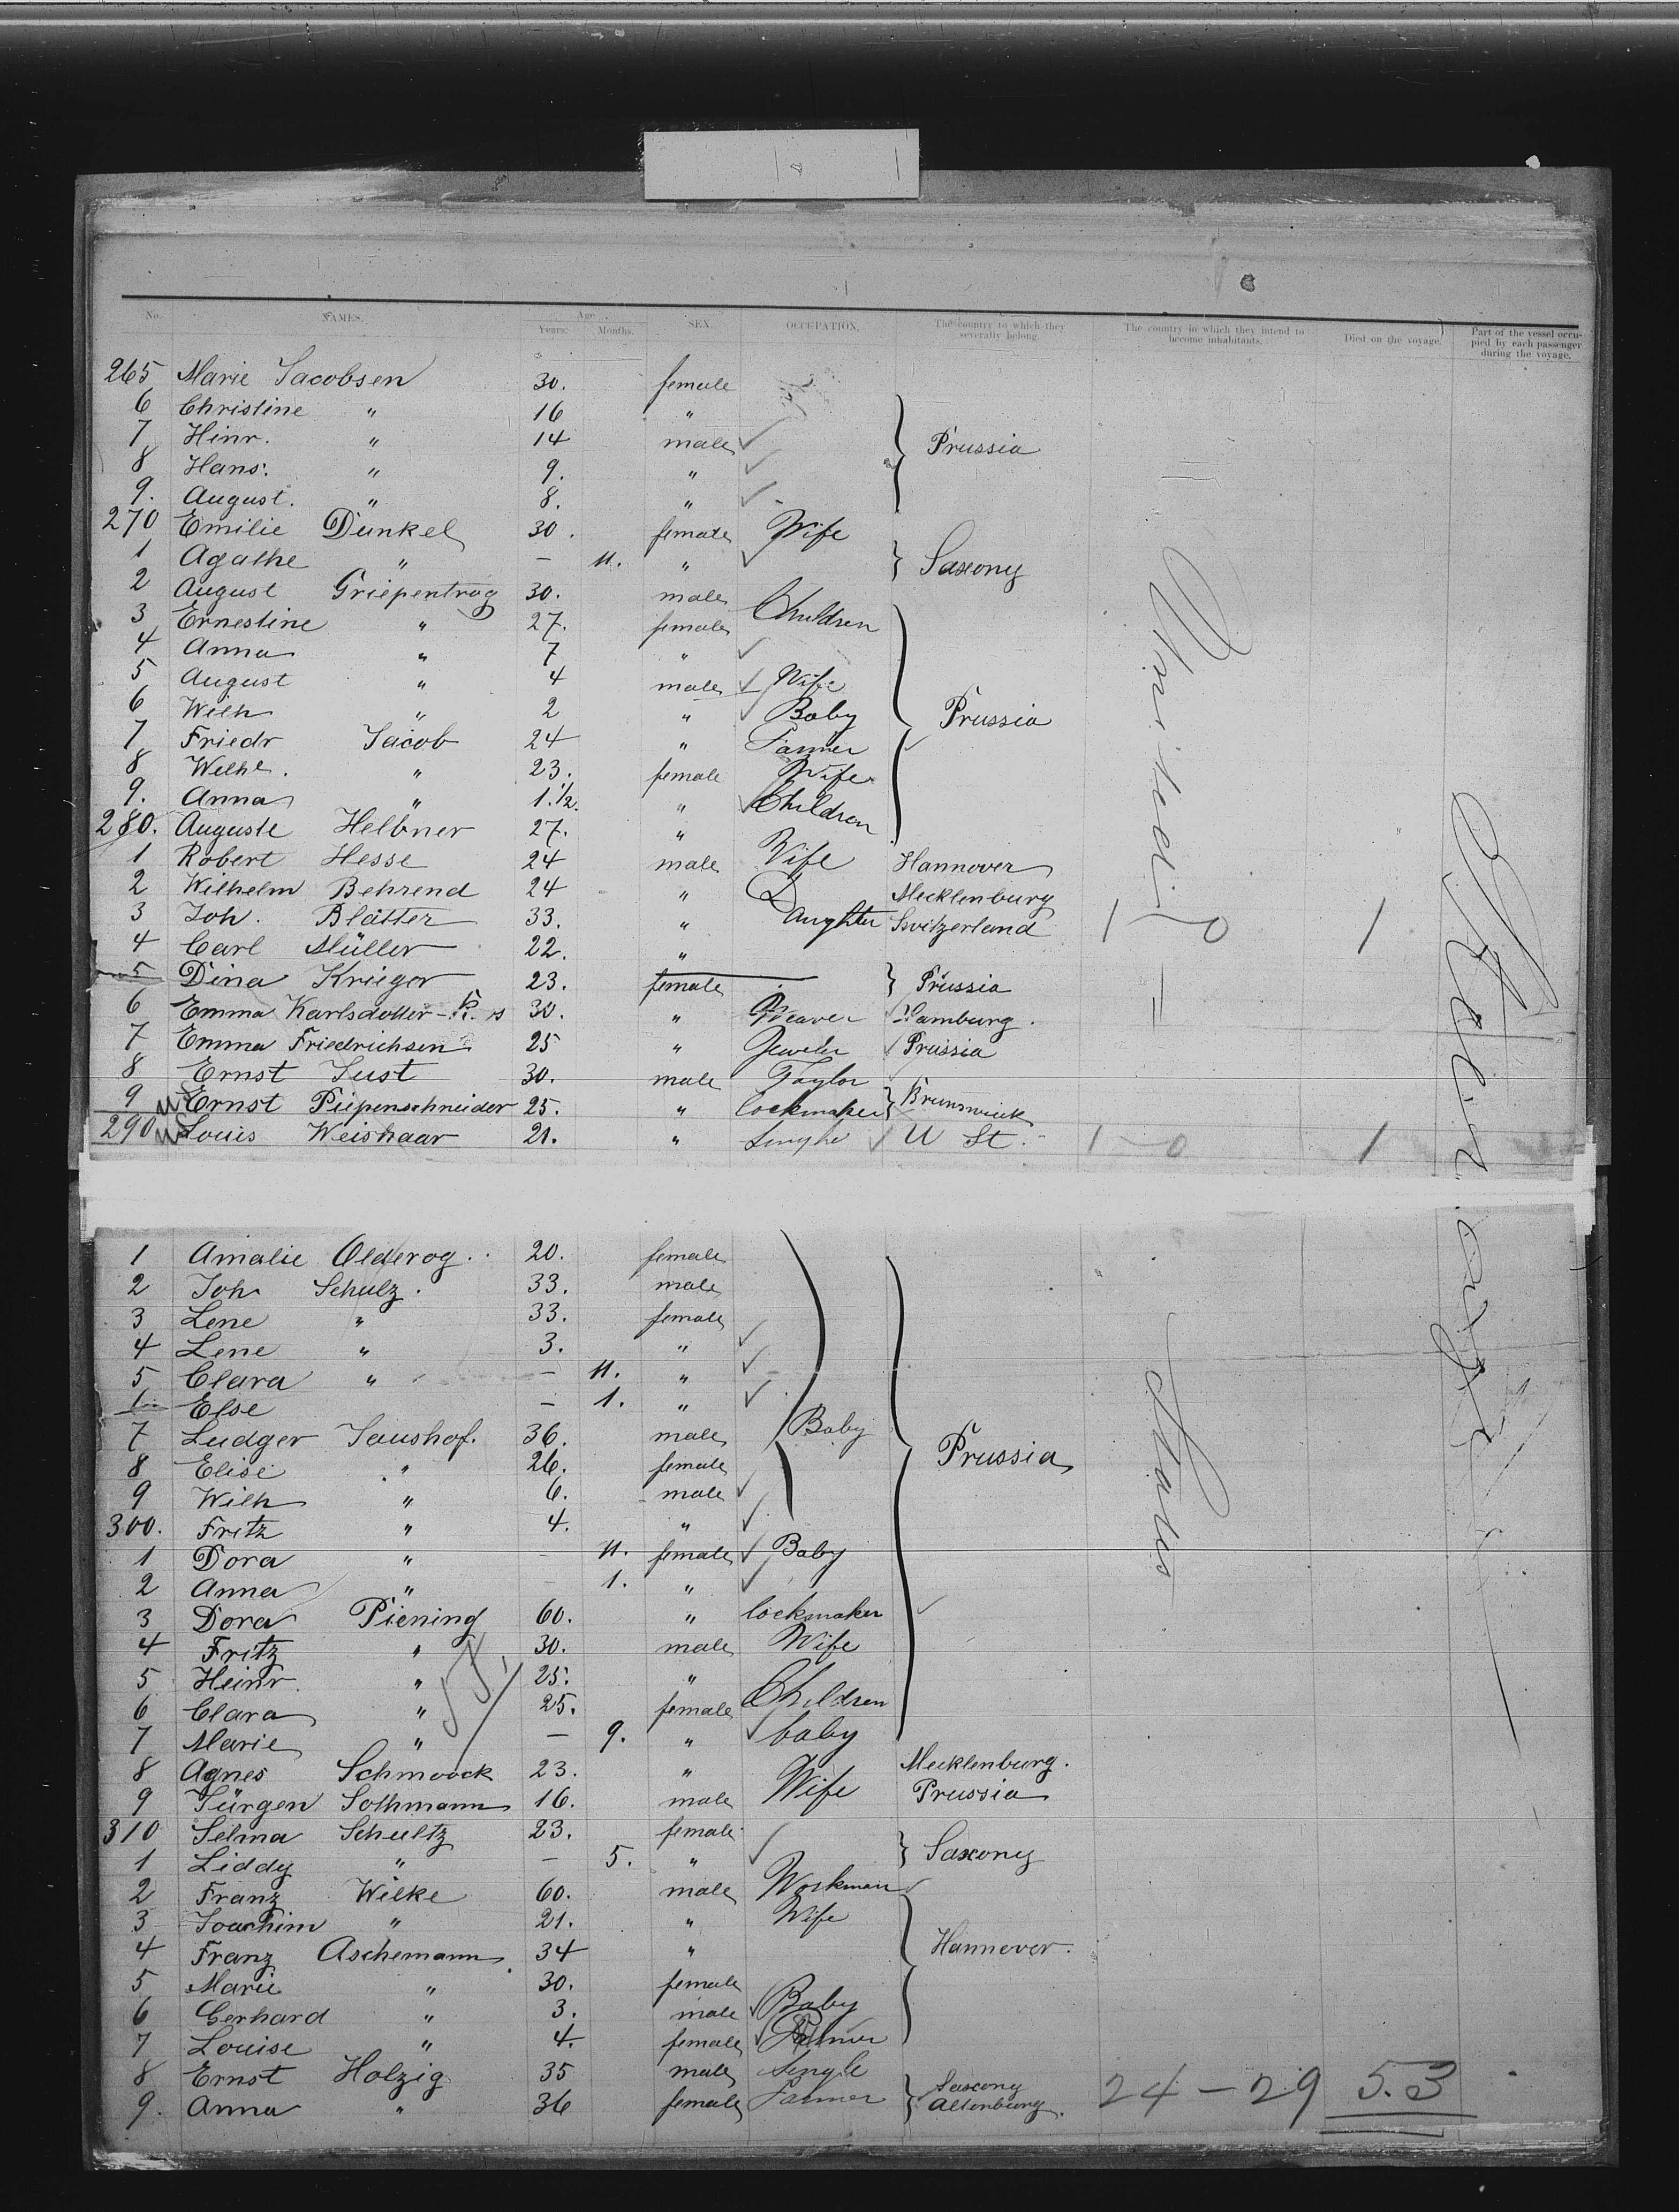 No. NAMES. Age Years. Months. SEX. OCCUPATION. The country to which they severally belong. The country in which they intend to become inhabitants. Died on the voyage. Part of the vessel occupied by each passenger during the voyage.
265 Marie Jacobsen 30. female
6 Christine " 16 "
7 Hinr. " 14 male ✓ Prussia
8 Hans. " 9. " ✓
9. August. " 8. " ✓
270 Emilie Dunkel 30. female Wife
1 Agathe " – 11. " ✓ Saxony
2 August Griepentrog 30. male
3 Ernestine " 27. female Children
4 Anna " 7 " ✓
5 August " 4 male ✓ Wife
6 Wilh " 2 " ✓ Baby Prussia
7 Friedr Jacob 24 " Farmer ✓
8 Wilhe. " 23. female Wife
9. Anna " 1.½. " ✓ Children
280. Auguste Helbner 27. "
1 Robert Hesse 24 male Wife Hannover
2 Wilhelm Behrend 24 " D Mecklenburg
3 Joh. Blätter 33. " aughter Switzerland 1 0 1
4 Carl Müller 22. "
5 Dina Krieger 23. female Prussia
6 Emma Karlsdotter - K. s 30. " Weaver Hamburg.
7 Emma Friedrichsen 25 " Jeweler ✓ Prussia
8 Ernst Just 30. male Taylor
9 Ernst Piepenschneider 25. " lockmaker Brunswick
290 Louis Weishaar 21. " Single ✓ U St. 1 - 0 1
United
Steerage
1 Amalie Olderog. 20. female
2 Joh Schulz. 33. male
3 Lene " 33. female
4 Lene " 3. " ✓
5 Clara " – 11. " ✓
Else – 1. " ✓
7 Ludger Jaushof. 36. male Baby Prussia
8 Elise " 26. female
9 Wilh " 6. male ✓
300. Fritz " 4. " ✓
1 Dora " – 11. female ✓ Baby
2 Anna " – 1. " ✓
3 Dora Piening 60. " lockmaker ✓
4 Fritz " 30. male Wife
5 Heinr. " 25. "
6 Clara " 25. female Children
7 Marie " – 9. " ✓ baby
8 Agnes Schmoock 23. " Mecklenburg.
9 Jürgen Sothmann 16. male Wife Prussia
310 Selma Schultz 23. female
1 Liddy " – 5. " ✓ Saxony
2 Franz Wilke 60. male Workman ✓
3 Joachim " 21. " Wife
4 Franz Aschemann 34 " Hannover.
5 Marie " 30. female
6 Gerhard " 3. male ✓ Baby
7 Louise " 4. female ✓ Farmer
8 Ernst Holzig 35 male Single Saxony
9. Anna " 36 female Farmer Altenburg. 24 - 29 53
States